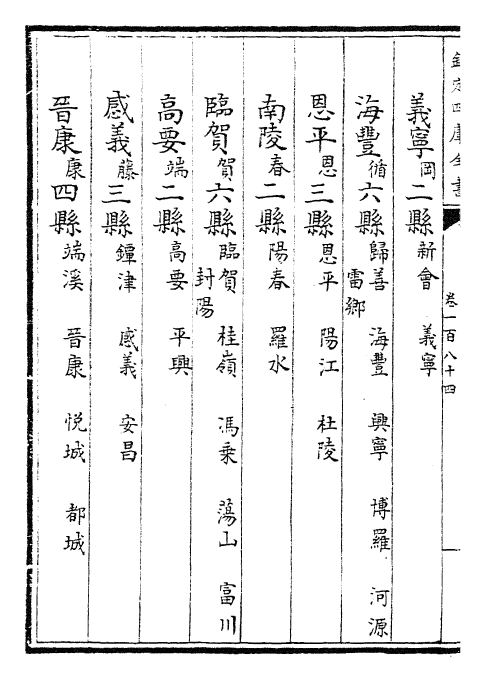 欽定四庫全書
卷一百八十四
義寧岡二縣新會 義寧
海豐循六縣歸善 海豐 興寧 博羅 河源
雷鄉
恩平恩三縣恩平 陽江 杜陵
南陵春二縣陽春 羅水
臨賀賀六縣臨賀 桂嶺 馮乗 蕩山 富川
封陽
高要端二縣高要 平興
感義藤三縣鐔津 感義 安昌
晉康康四縣端溪 晉康 悦城 都城